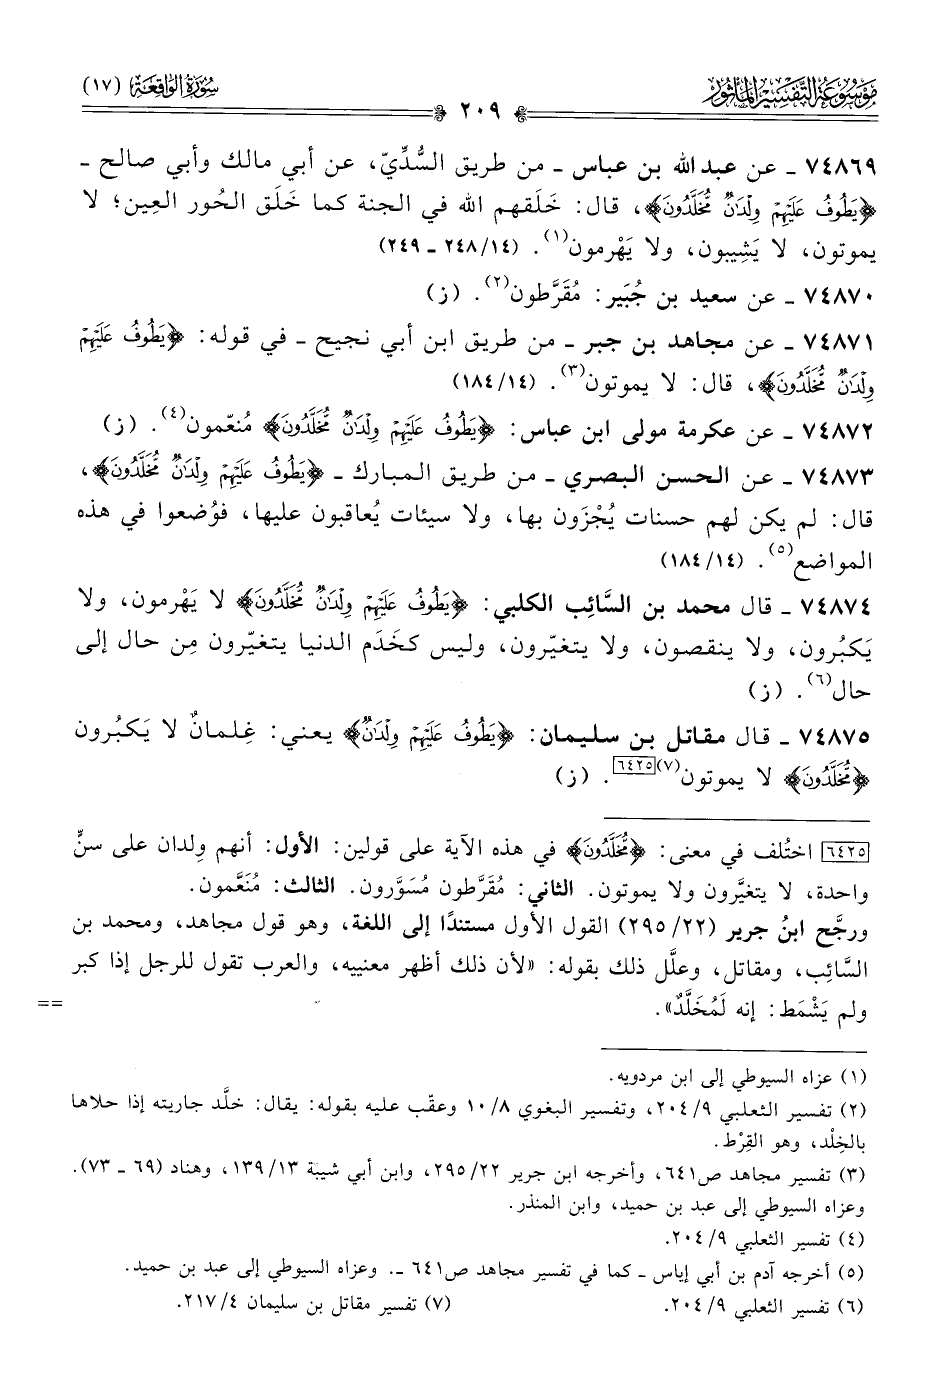 مَوْسُوعَةُ التَّفْسِيرِ المَأْثُورِ
سُورَةُ الوَاقِعَةِ (١٧)
٢٠٩
٧٤٨٦٩ ـ عن عبد الله بن عباس ـ من طريق السُّدِّيّ، عن أبي مالك وأبي صالح ـ
﴿يَطُوفُ عَلَيْهِمْ وِلْدَانٌ مُّخَلَّدُونَ﴾، قال: خَلَقهم الله في الجنة كما خَلَق الحُور العِين؛ لا
يموتون، لا يَشِيبون، ولا يَهْرمون(١). (١٤/ ٢٤٨ ـ ٢٤٩)
٧٤٨٧٠ ـ عن سعيد بن جُبَير: مُقَرَّطون(٢). (ز)
٧٤٨٧١ ـ عن مجاهد بن جبر ـ من طريق ابن أبي نجيح ـ في قوله: ﴿يَطُوفُ عَلَيْهِمْ
وِلْدَانٌ مُّخَلَّدُونَ﴾، قال: لا يموتون(٣). (١٤/ ١٨٤)
٧٤٨٧٢ ـ عن عكرمة مولى ابن عباس: ﴿يَطُوفُ عَلَيْهِمْ وِلْدَانٌ مُّخَلَّدُونَ﴾ مُنعّمون(٤). (ز)
٧٤٨٧٣ ـ عن الحسن البصري ـ من طريق المبارك ـ ﴿يَطُوفُ عَلَيْهِمْ وِلْدَانٌ مُّخَلَّدُونَ﴾،
قال: لم يكن لهم حسنات يُجْزَون بها، ولا سيئات يُعاقبون عليها، فوُضعوا في هذه
المواضع(٥). (١٤/ ١٨٤)
٧٤٨٧٤ ـ قال محمد بن السَّائب الكلبي: ﴿يَطُوفُ عَلَيْهِمْ وِلْدَانٌ مُّخَلَّدُونَ﴾ لا يَهْرمون، ولا
يَكبُرون، ولا ينقصون، ولا يتغيّرون، وليس كخَدَم الدنيا يتغيّرون مِن حال إلى
حال(٦). (ز)
٧٤٨٧٥ ـ قال مقاتل بن سليمان: ﴿يَطُوفُ عَلَيْهِمْ وِلْدَانٌ﴾ يعني: غِلمانٌ لا يَكبُرون
﴿مُّخَلَّدُونَ﴾ لا يموتون(٧)[٦٤٢٥]. (ز)
[٦٤٢٥] اختُلف في معنى: ﴿مُّخَلَّدُونَ﴾ في هذه الآية على قولين: الأول: أنهم وِلدان على سنٍّ
واحدة، لا يتغيَّرون ولا يموتون. الثاني: مُقَرَّطون مُسَوَّرون. الثالث: مُنَعَّمون.
ورجَّح ابنُ جرير (٢٢/ ٢٩٥) القول الأول مستندًا إلى اللغة، وهو قول مجاهد، ومحمد بن
السَّائِب، ومقاتل، وعلَّل ذلك بقوله: «لأن ذلك أظهر معنييه، والعرب تقول للرجل إذا كبر
ولم يَشْمَط: إنه لَمُخَلَّدٌ». ==
(١) عزاه السيوطي إلى ابن مردويه.
(٢) تفسير الثعلبي ٩/ ٢٠٤، وتفسير البغوي ٨/ ١٠ وعقّب عليه بقوله: يقال: خلَّد جاريته إذا حلاها
بالخِلْد، وهو القِرْط.
(٣) تفسير مجاهد ص٦٤١، وأخرجه ابن جرير ٢٢/ ٢٩٥، وابن أبي شيبة ١٣/ ١٣٩، وهناد (٦٩ ـ ٧٣).
وعزاه السيوطي إلى عبد بن حميد، وابن المنذر.
(٤) تفسير الثعلبي ٩/ ٢٠٤.
(٥) أخرجه آدم بن أبي إياس ـ كما في تفسير مجاهد ص٦٤١ ـ. وعزاه السيوطي إلى عبد بن حميد.
(٦) تفسير الثعلبي ٩/ ٢٠٤. (٧) تفسير مقاتل بن سليمان ٤/ ٢١٧.